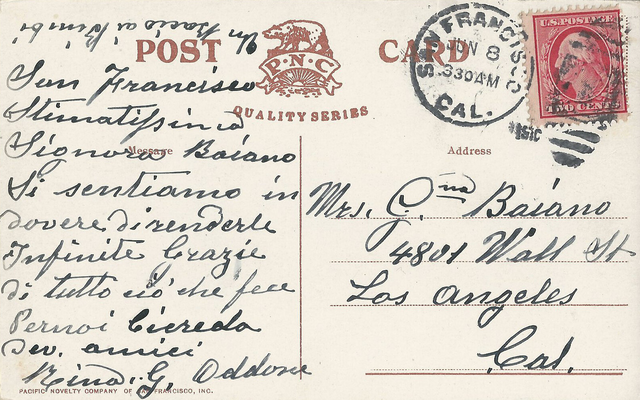 Un Bacio ai Bimbi
POST CARD
P.N.C
QUALITY SERIES
SAN FRANCISCO
JUN 8
830AM
CAL.
U.S. POSTAGE
TWO CENTS
San Francisco
Stimatissima
Message
Signora Baiano
Address
Si sentiamo in
dovere di renderle
Infinite Grazie
di tutto ciò che fece
Per noi Ci creda
Dev. amici
Nina. G. Oddone
Mrs. G.na Baiano
4801 Wall St
Los Angeles
Cal.
PACIFIC NOVELTY COMPANY OF SAN FRANCISCO, INC.